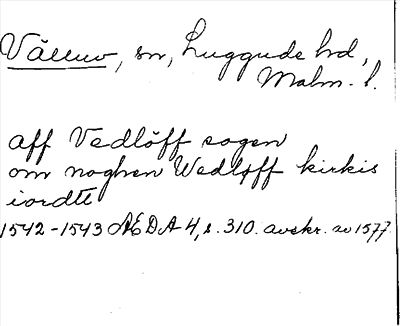 Välluv, sn, Luggude hd,
Malm. l.
aff Vedlöff sogen
om noghen Wedløff kirkis
iordte
1542-1543 ÆDA 4, s. 310. avskr. av 1577.